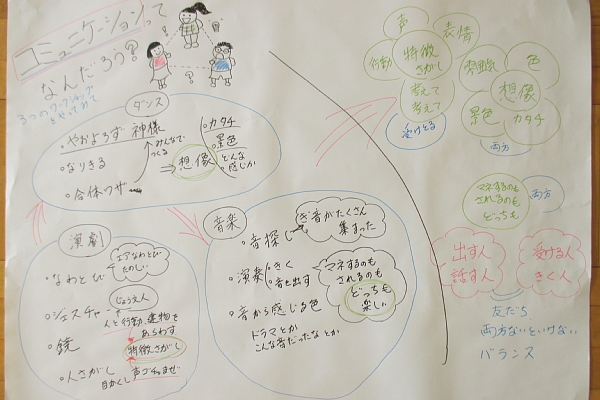 コミュニケーションって
なんだろう?
3つのワークショップ
をやってみて
ダンス
・やおよろず神様
みんなで
つくる
・なりきる
・合体ワザ
⇒想像
・カタチ
・景色
・どんな
感じか
演劇
・なわとび
エアなわとび
たのしい
・ジェスチャー
じょうえん
人と行動、建物を
あらわす
・鏡
特徴さがし
・人さがし
目かくし
声ごちゃまぜ
音楽
・音探し
ぎ音がたくさん
集まった
・演奏/きく
・音を出す
マネするのも
されるのも
どっちも
楽しい
・音から感じる色
ドラマとか
こんな音だったな とか
声
表情
行動
特徴
さがし
考えて
考えて
受けとる
雰囲気
色
想像
景色
カタチ
両方
マネするのも
されるのも
どっちも
両方
出す人
話す人
受ける人
きく人
友だち
両方ないといけない
バランス